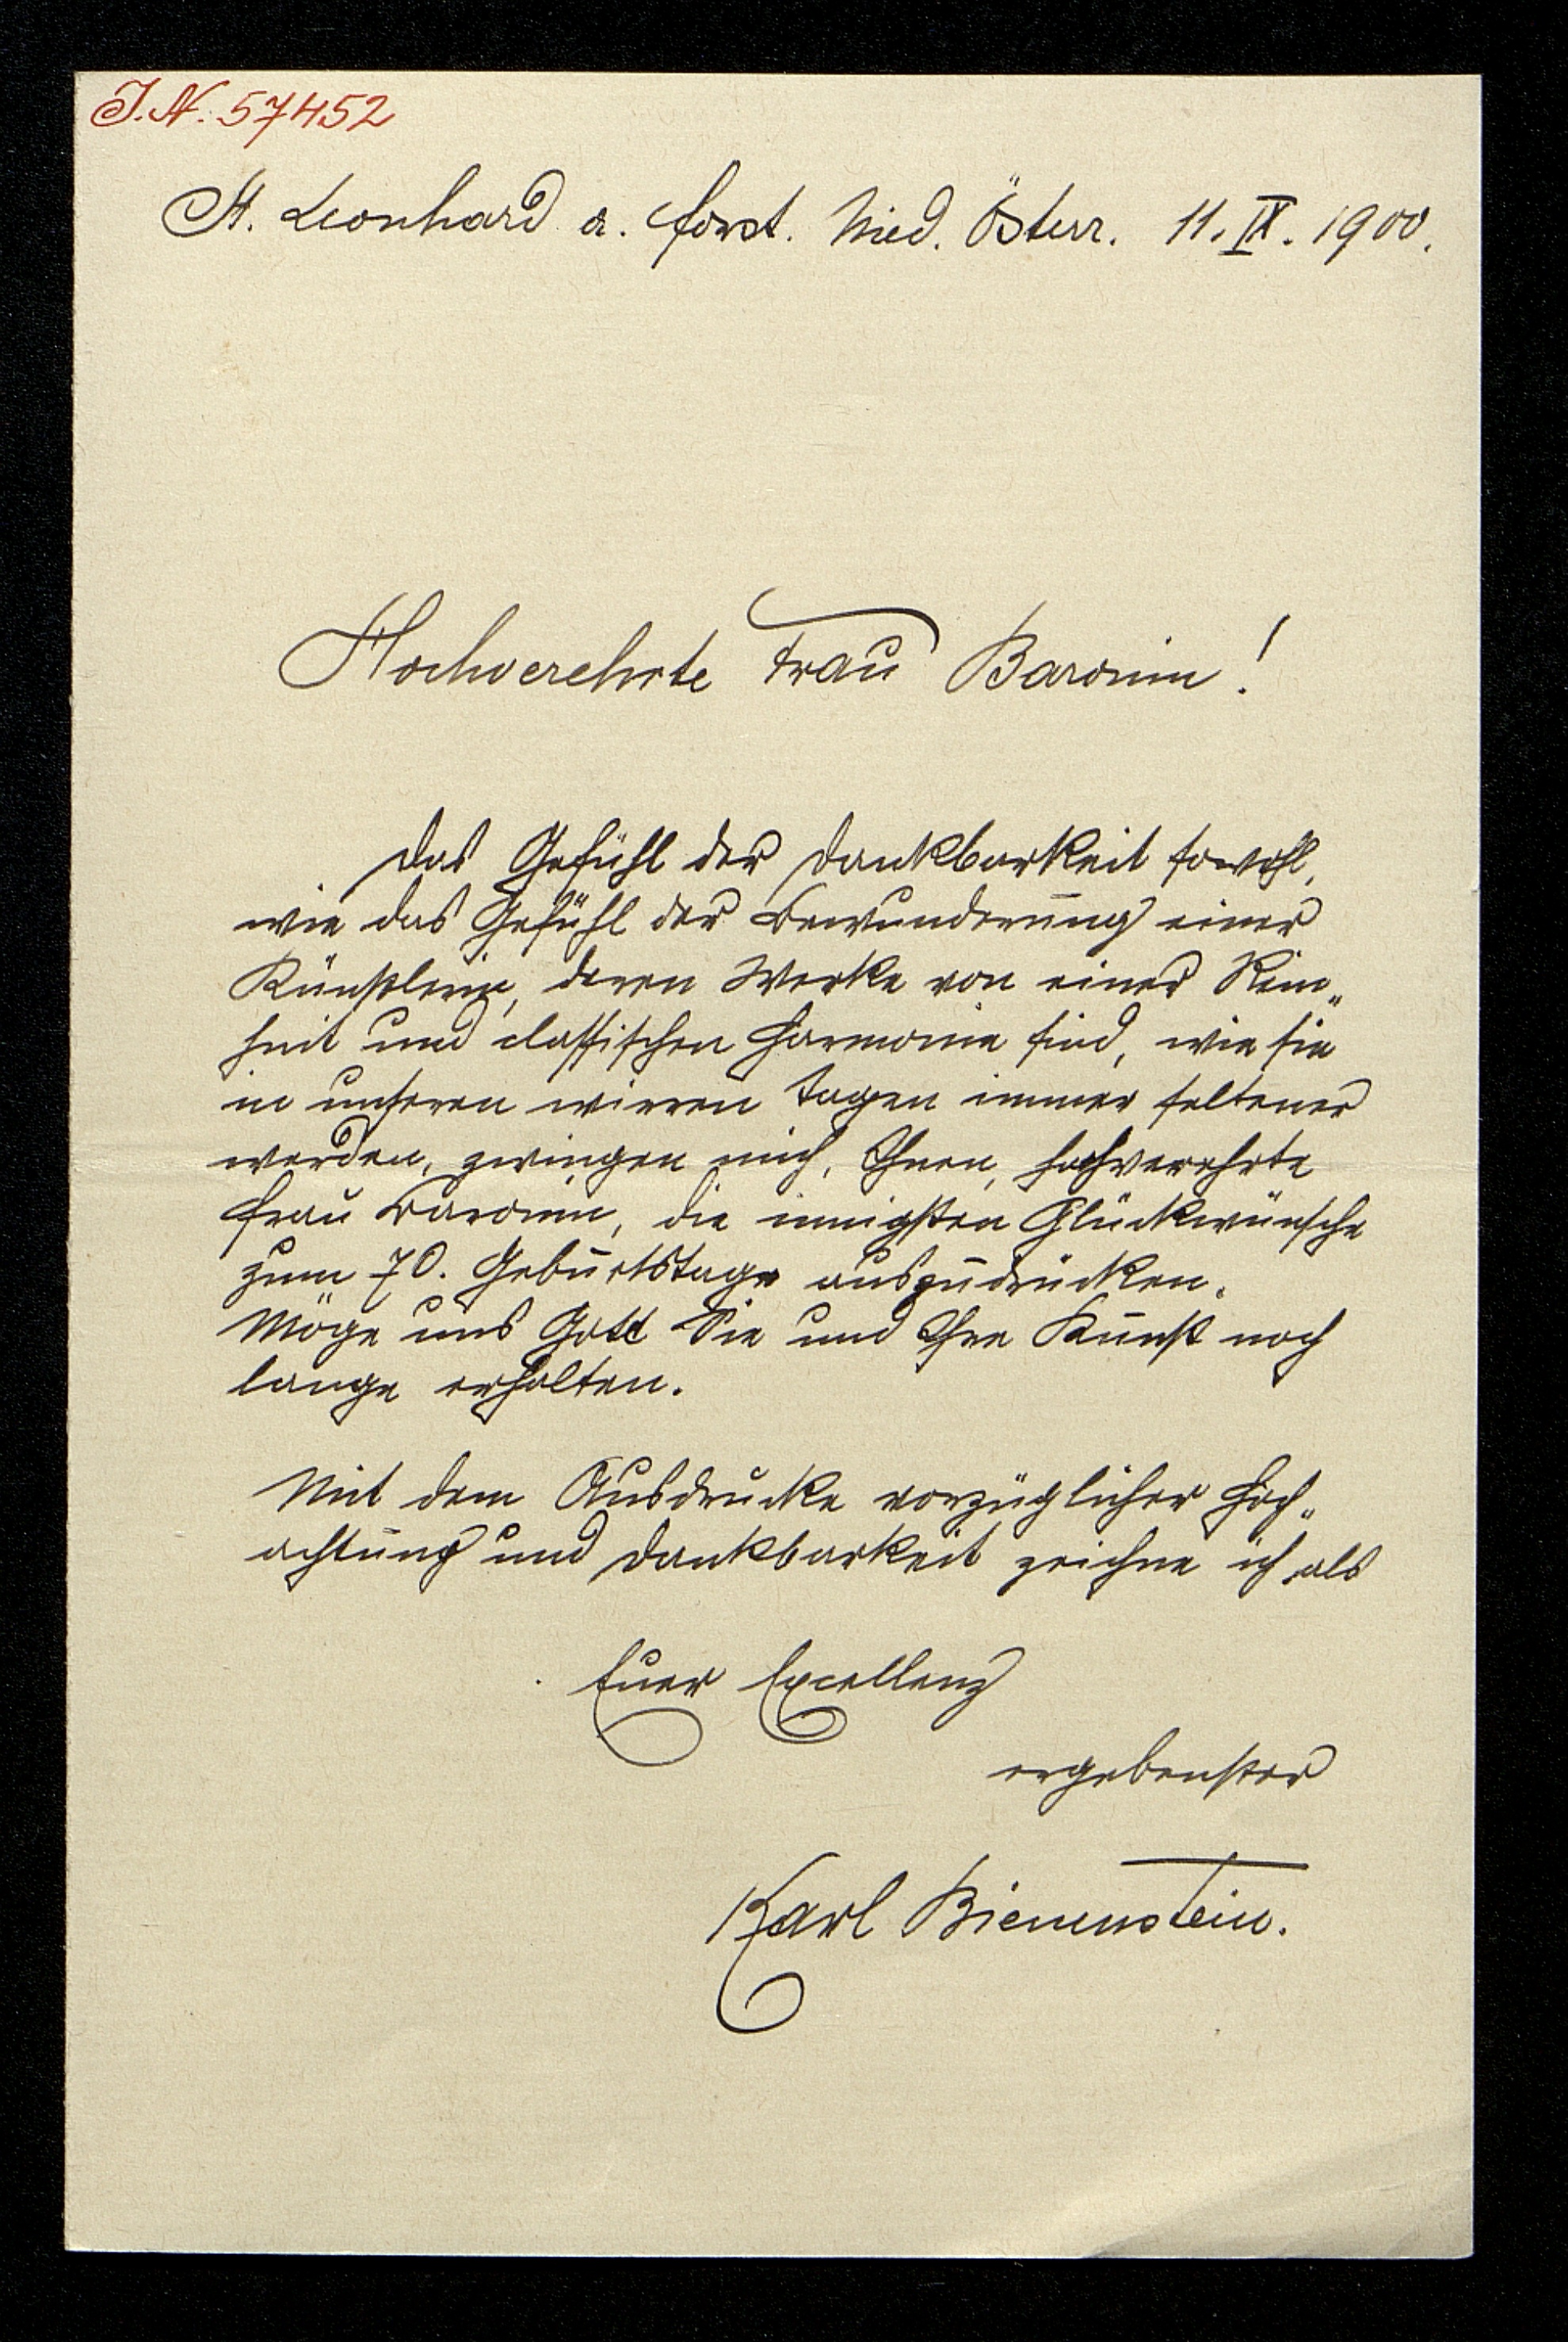 J.N. 57452
St. Leonhard a. Forst. Nied. Österr. 11. IX. 1900.
Hochverehrte Frau Baronin!
Das Gefühl der Dankbarkeit sowohl,
wie das Gefühl der Bewunderung einer
Künstlerin, deren Werke von einer Rein„
heit und classischen Harmonie sind, wie sie
in unseren wirren Tagen immer seltener
werden, zwingen mich, Ihnen, hochverehrte
Frau Baronin, die innigsten Glückwünsche
zum 70. Geburtstage auszudrücken.
Möge uns Gott Sie und Ihre Kunst noch
lange erhalten.
Mit dem Ausdrucke vorzüglicher Hoch„
achtung und Dankbarkeit zeichne ich als
Euer Excellenz
ergebenster
Karl Bienenstein.